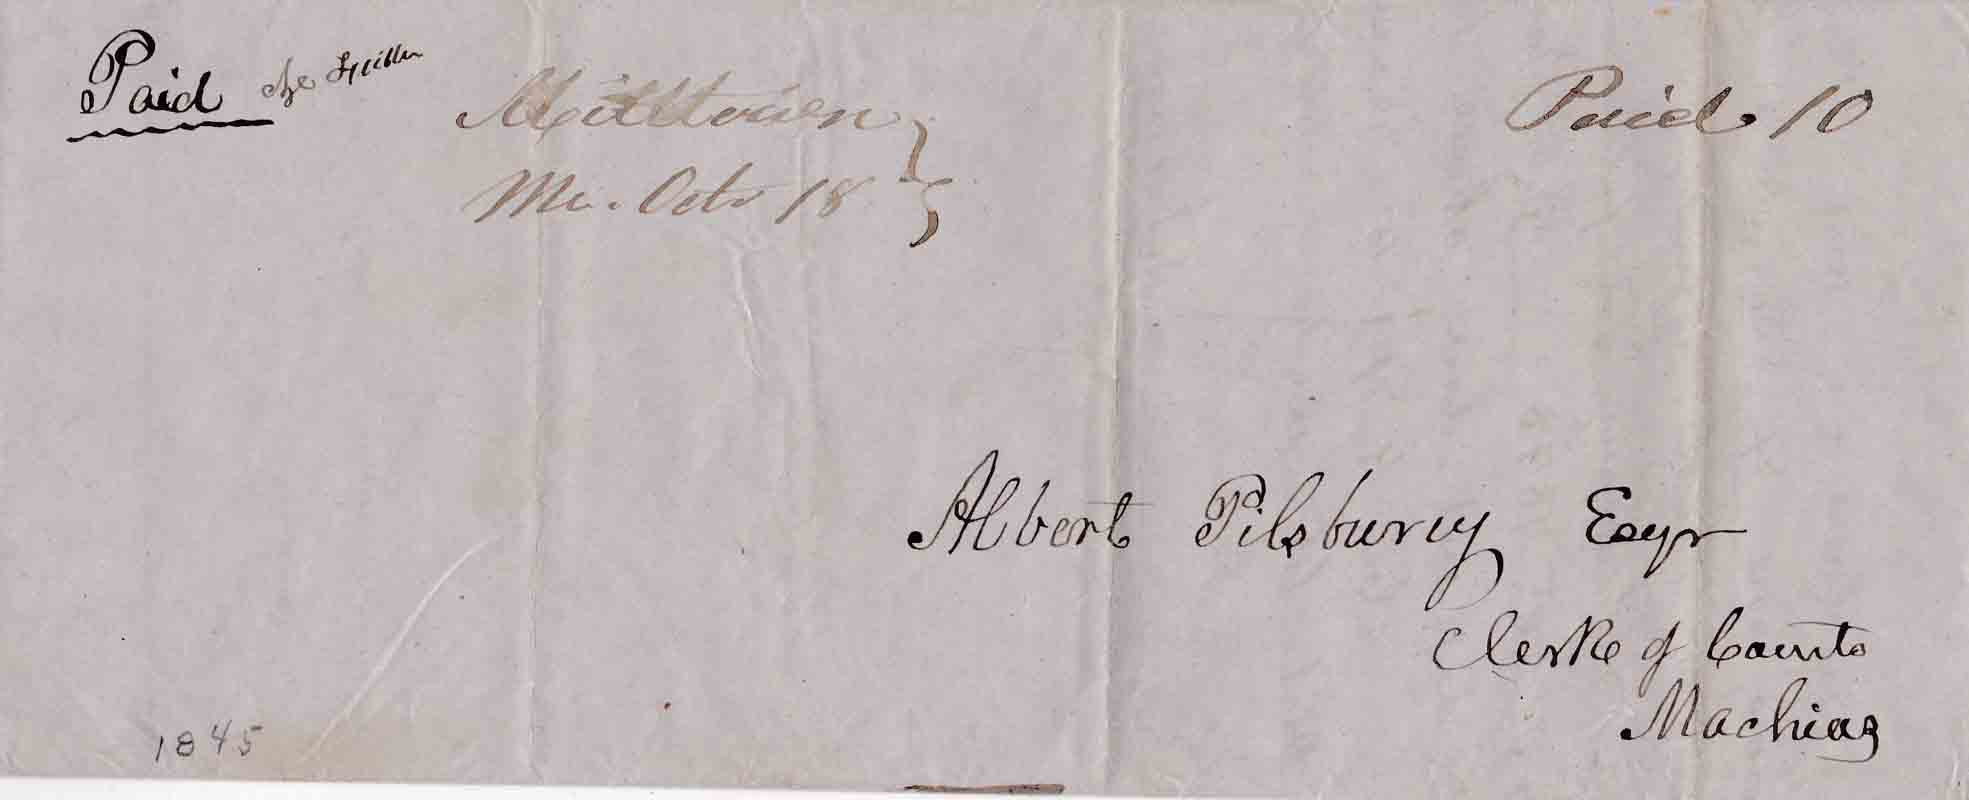 Paid chg
Milltown
Me. Octr 18
Paid 10
Albert Pilsbury Esqr
Clerk of Courts
Machias
1845